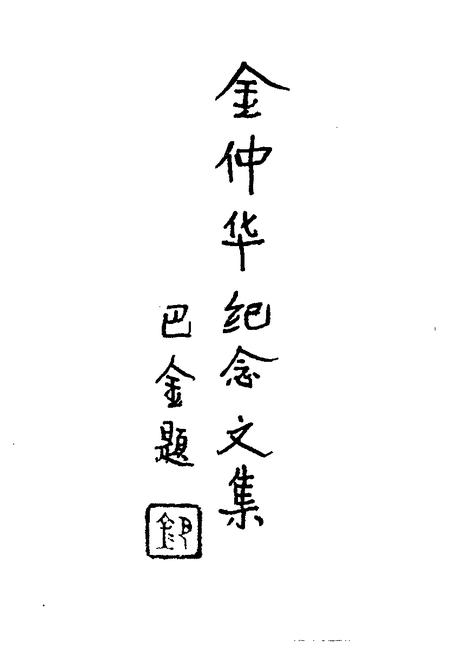 金仲华纪念文集
巴金题
巴金